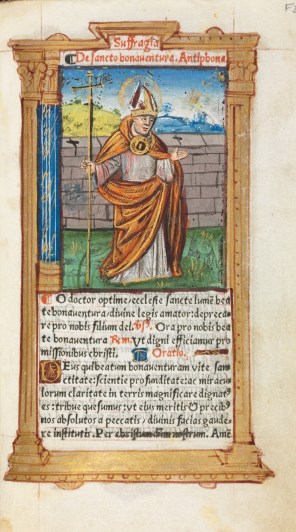 Suffragia
De sancto bonauentura. Antiphona
O doctor optime/ecclesie sancte lumē bea
te bonauentura/diuine legis amator: depreca
re pro nobis filium dei. Vs. Ora pro nobis bea
te bonauentura Rem. Vt digni efficiamur pro
missionibus christi. Oratio.
Deus qui beatum bonauenturam vite san
ctitate: scientie profunditate: ac miracu
lorum claritate in terris magnificare dignat⁹
es: tribue quesumus: vt eius meritis & precib⁹
nos absolutos a peccatis/diuinis facias gaude
re institutis. Per christum nostrum. Amē